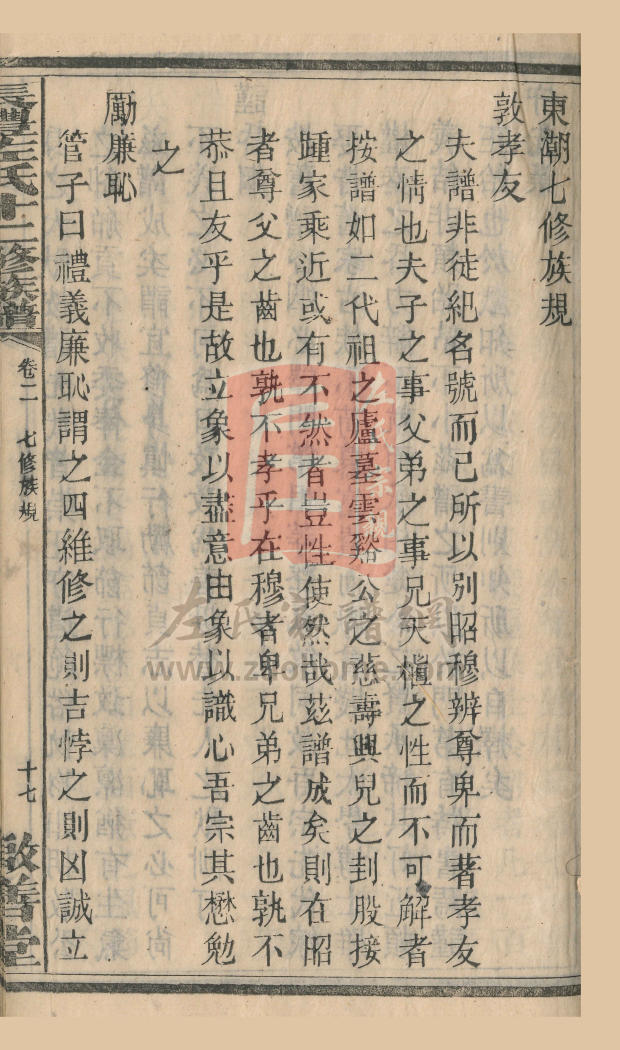 東潮七修族規
敦孝友
夫譜非徒紀名號而已所以別昭穆辨尊卑而著孝友
之情也夫子之事父弟之事兄天植之性而不可解者
按譜如二代祖之廬墓雲谿公之慈壽興兒之刲股接
踵家乘近或有不然者豈性使然哉茲譜成矣則在昭
者尊父之齒也孰不孝乎在穆者卑兄弟之齒也孰不
恭且友乎是故立象以盡意由象以識心吾宗其懋勉
之
勵廉恥
管子曰禮義廉恥謂之四維修之則吉悖之則凶誠立
長豐左氏十二修族譜
卷二
七修族規
十七
啟善堂
左氏家譜網
www.zuohome.com